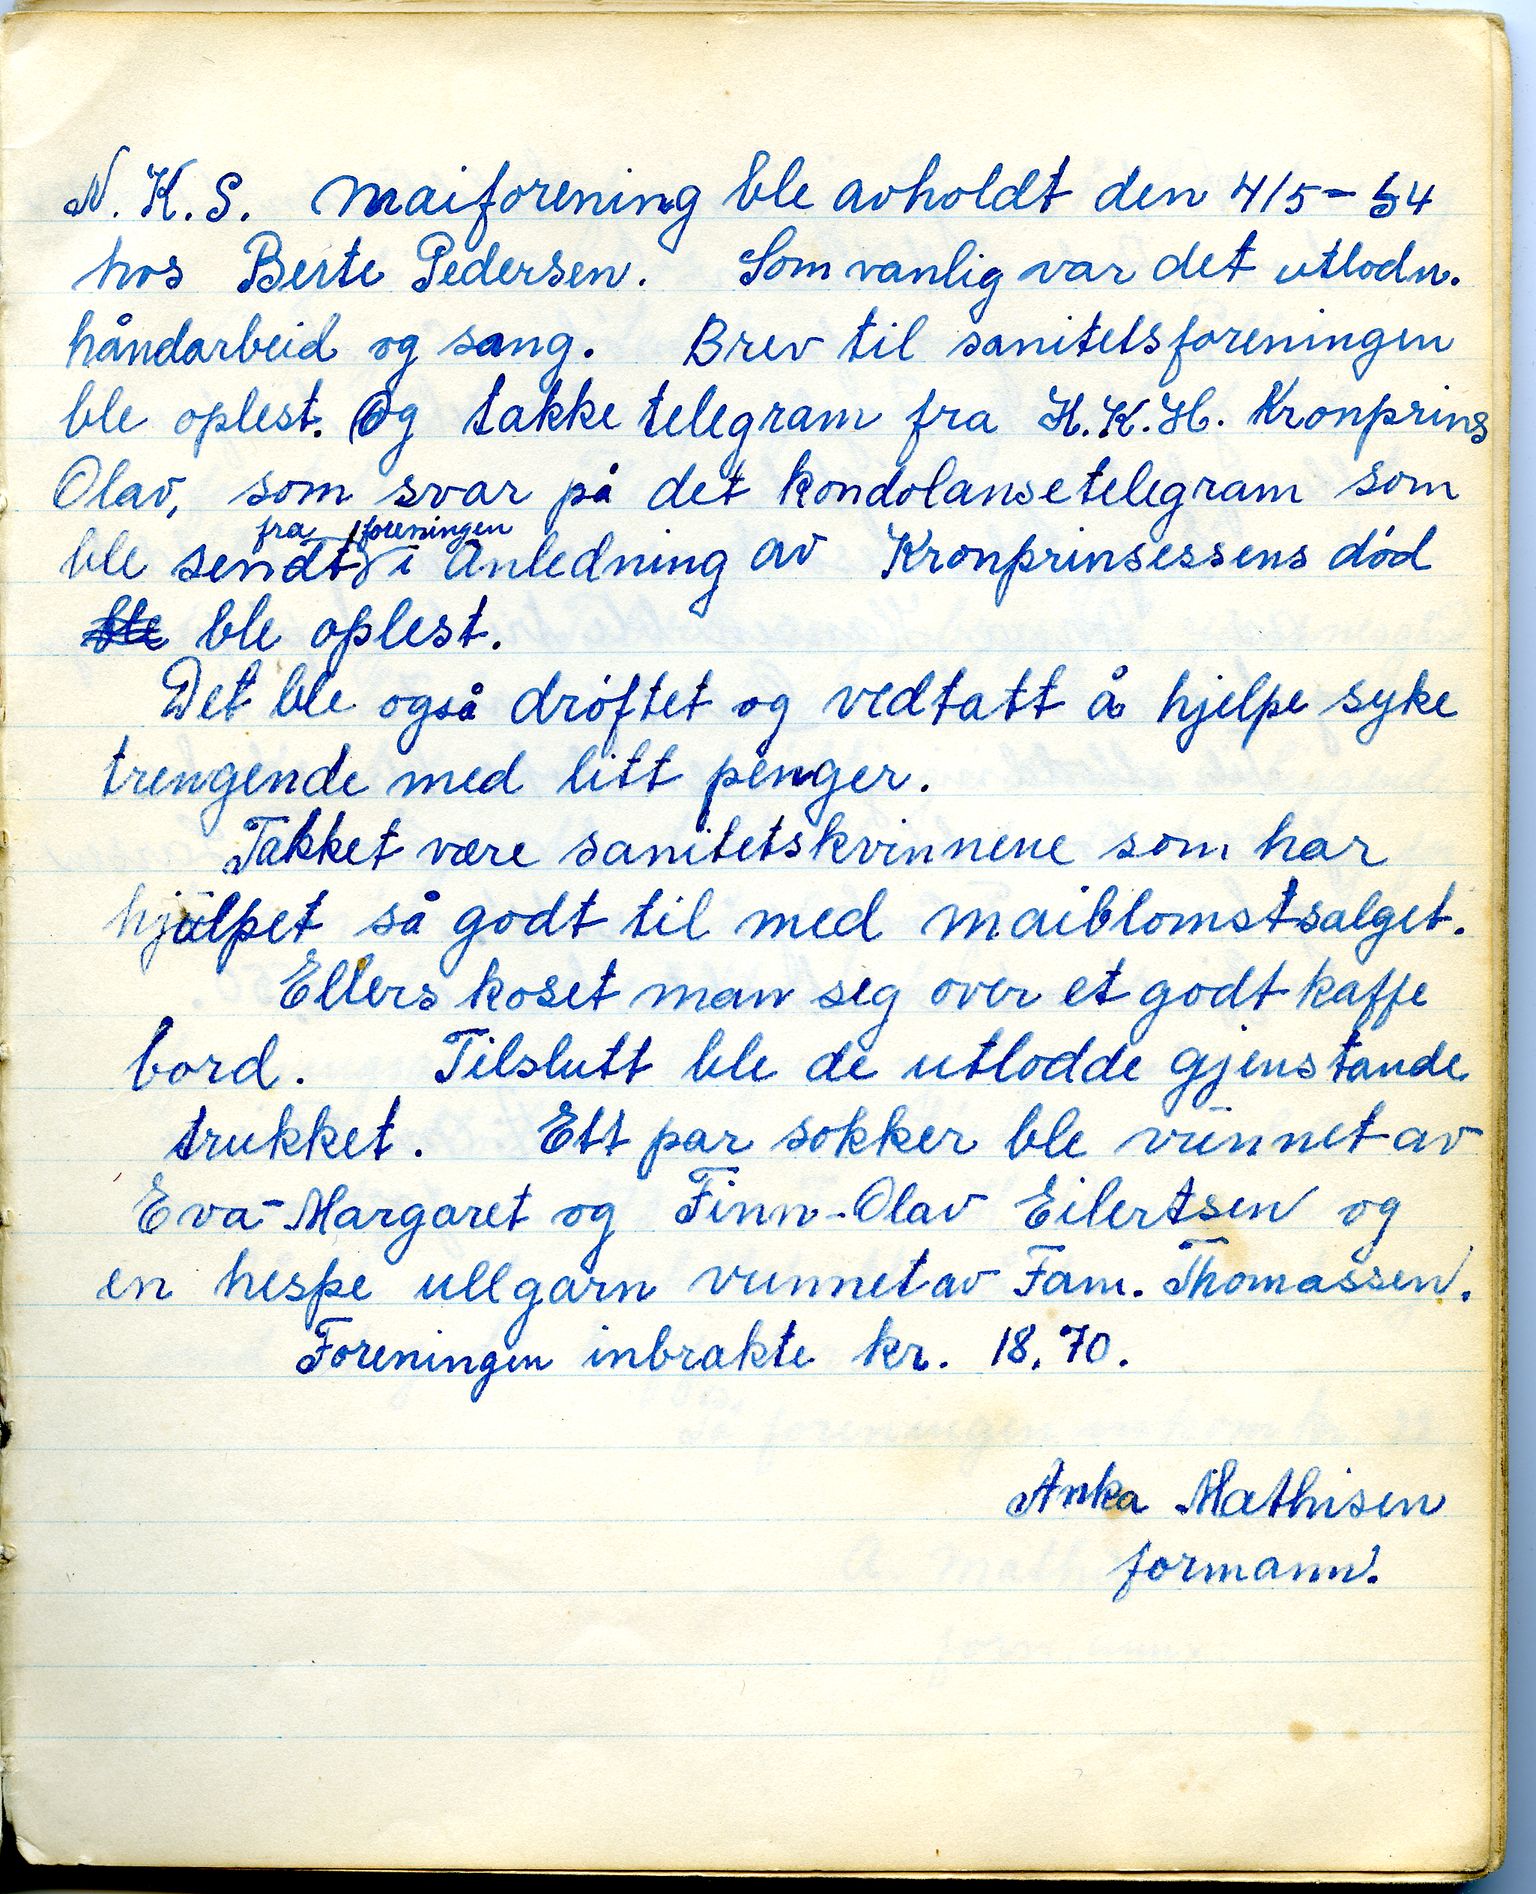 N. K. S. Maiforening ble avholdt den 4/5 - 54
hos Berte Pedersen. Som vanlig var det utlodn.
håndarbeid og sang. Brev til sanitetsforeningen
ble oplest. Og takke telegram fra H.K.H. Kronprins
Olav, som svar på det kondolansetelegram som
fra foreningen
ble sendt i Anledning av Kronprinsessens død
ble ble oplest.
Det ble også drøftet og vedtatt å hjelpe syke
trengende med litt penger.
Takket være sanitetskvinnene som har
hjulpet så godt til med maiblomstsalget.
Ellers koset man seg over et godt kaffe
bord. Tilslutt ble de utlodde gjenstande
trukket. Ett par sokker ble vunnet av
Eva-Margaret og Finn-Olav Eilertsen og
en hespe ullgarn vunnet av Fam. Thomassen.
Foreningen inbrakte kr. 18.70.
Anka Mathisen
formann.